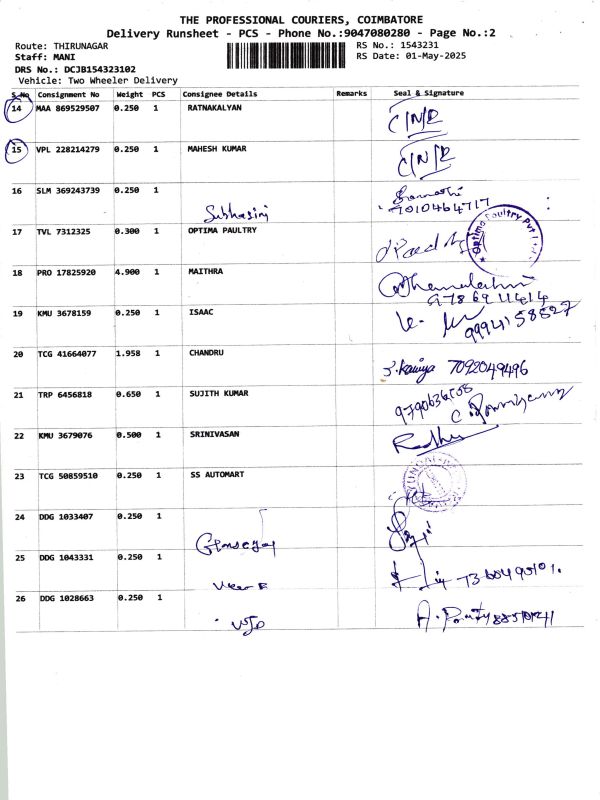 THE PROFESSIONAL COURIERS, COIMBATORE
Delivery Runsheet - PCS - Phone No.:9047080280 - Page No.:2
Route: THIRUNAGAR RS No.: 1543231
Staff: MANI RS Date: 01-May-2025
DRS No.: DCJB154323102
Vehicle: Two Wheeler Delivery
S.No Consignment No Weight PCS Consignee Details Remarks Seal & Signature
14 MAA 869529507 0.250 1 RATNAKALYAN C/N/R
15 VPL 228214279 0.250 1 MAHESH KUMAR C/N/R
16 SLM 369243739 0.250 1 Subhasini 7010464717
17 TVL 7312325 0.300 1 OPTIMA PAULTRY Optima Poultry Pvt Ltd
18 PRO 17825920 4.900 1 MAITHRA
19 KMU 3678159 0.250 1 ISAAC 9994158827
20 TCG 41664077 1.958 1 CHANDRU 7092049496
21 TRP 6456818 0.650 1 SUJITH KUMAR
22 KMU 3679076 0.500 1 SRINIVASAN
23 TCG 50859510 0.250 1 SS AUTOMART
24 DDG 1033407 0.250 1
25 DDG 1043331 0.250 1
26 DDG 1028663 0.250 1